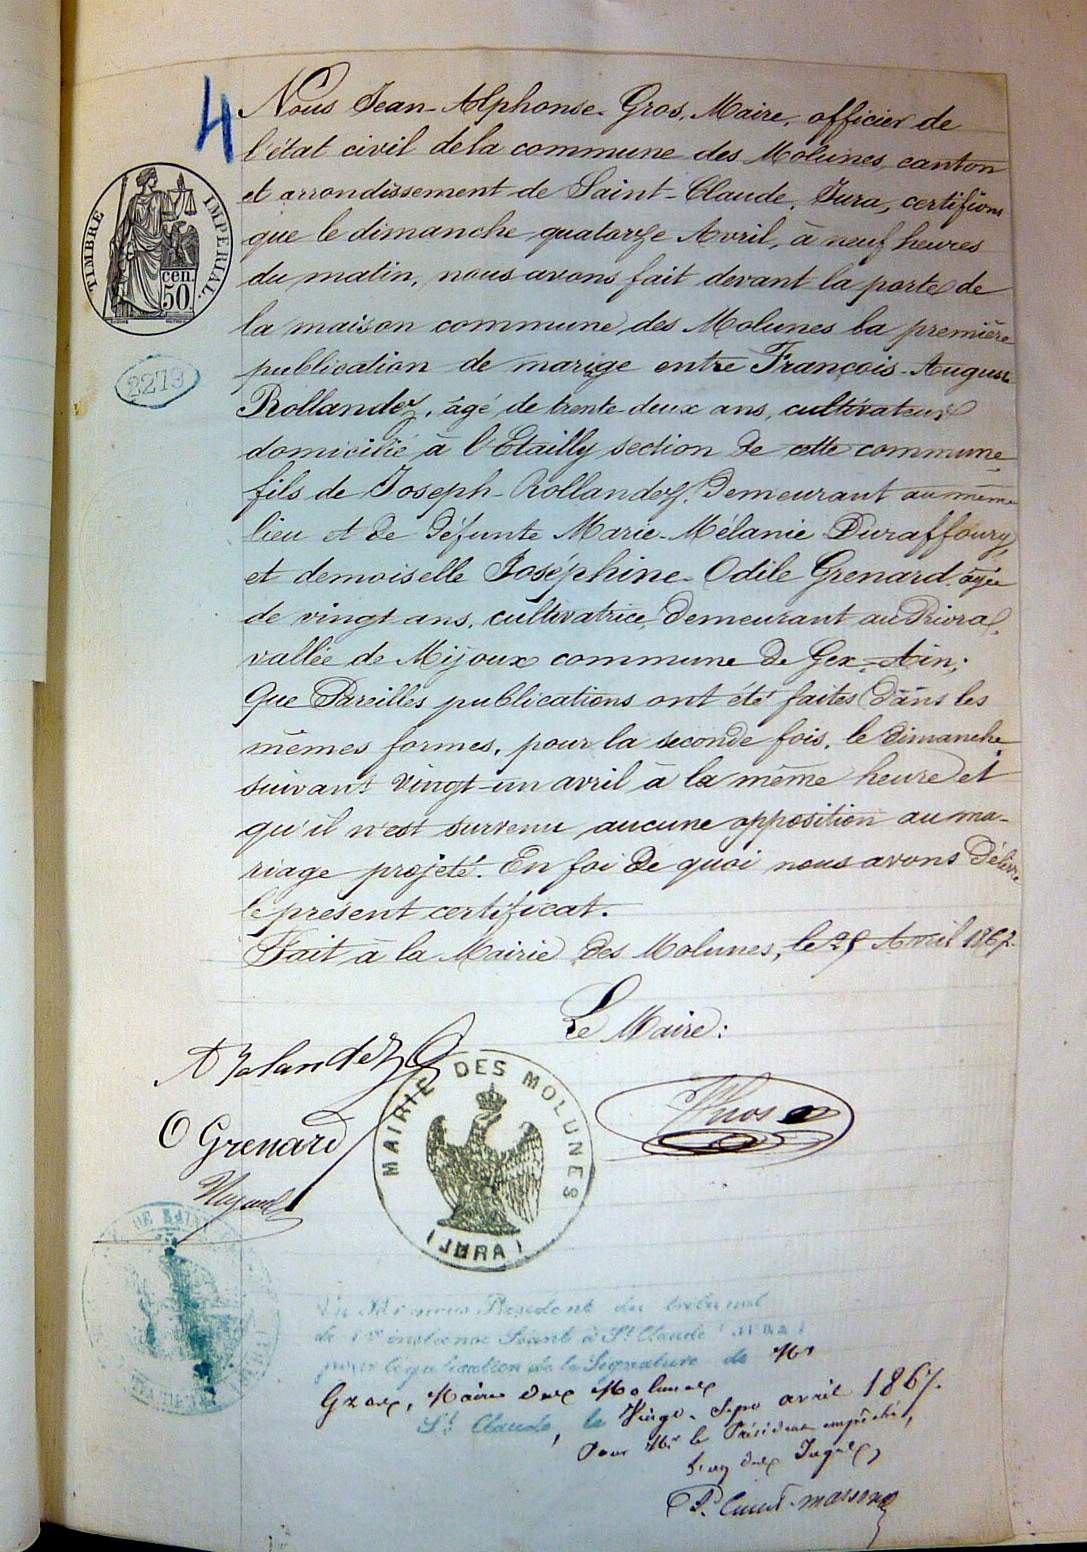 4
Nous Jean-Alphonse Gros, Maire, officier de
l'état civil de la commune des Molunes, canton
et arrondissement de Saint-Claude, Jura, certifions
que le dimanche quatorze Avril, à neuf heures
du matin, nous avons fait devant la porte de
la maison commune des Molunes la première
publication de marige entre François-Auguste
Rollandez, âgé de trente-deux ans, cultivateur
domicilié à l'Etailly section de cette commune
fils de Joseph Rollandez, demeurant au même
lieu et de défunte Marie-Mélanie Duraffourg,
et demoiselle Joséphine-Odile Grenard, âgée
de vingt ans, cultivatrice, demeurant au
vallée de Mijoux commune de Gex, Ain;
Que Pareilles publications ont été faites dans les
mêmes formes, pour la seconde fois, le dimanche
suivant vingt-un avril à la même heure et
qu'il n'est survenu aucune opposition au ma-
riage projeté. En foi de quoi nous avons délivré
le présent certificat.
Fait à la Mairie des Molunes, le 25 Avril 1867.
Le Maire:
TIMBRE IMPERIAL.
50 cen
2279
A Rolandez
O Grenard
MAIRIE DES MOLUNES
(JURA)
Vu Par nous Président du tribunal
de 1re instance Séant à St Claude (JURA)
pour légalisation de la Signature de Mr
Gros, Maire des Molunes
St Claude, le Vingt-Sept avril 1867.
Pour Mr le Président empêché,
L'un des Juges,